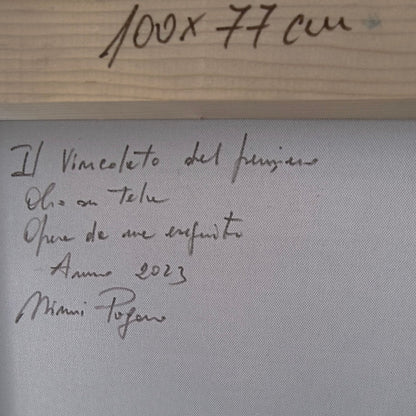 100x77 cm
Il Vincolato del pensiero
Olio su tela
Opera da me eseguita
Anno 2023
Mimmi Pagano